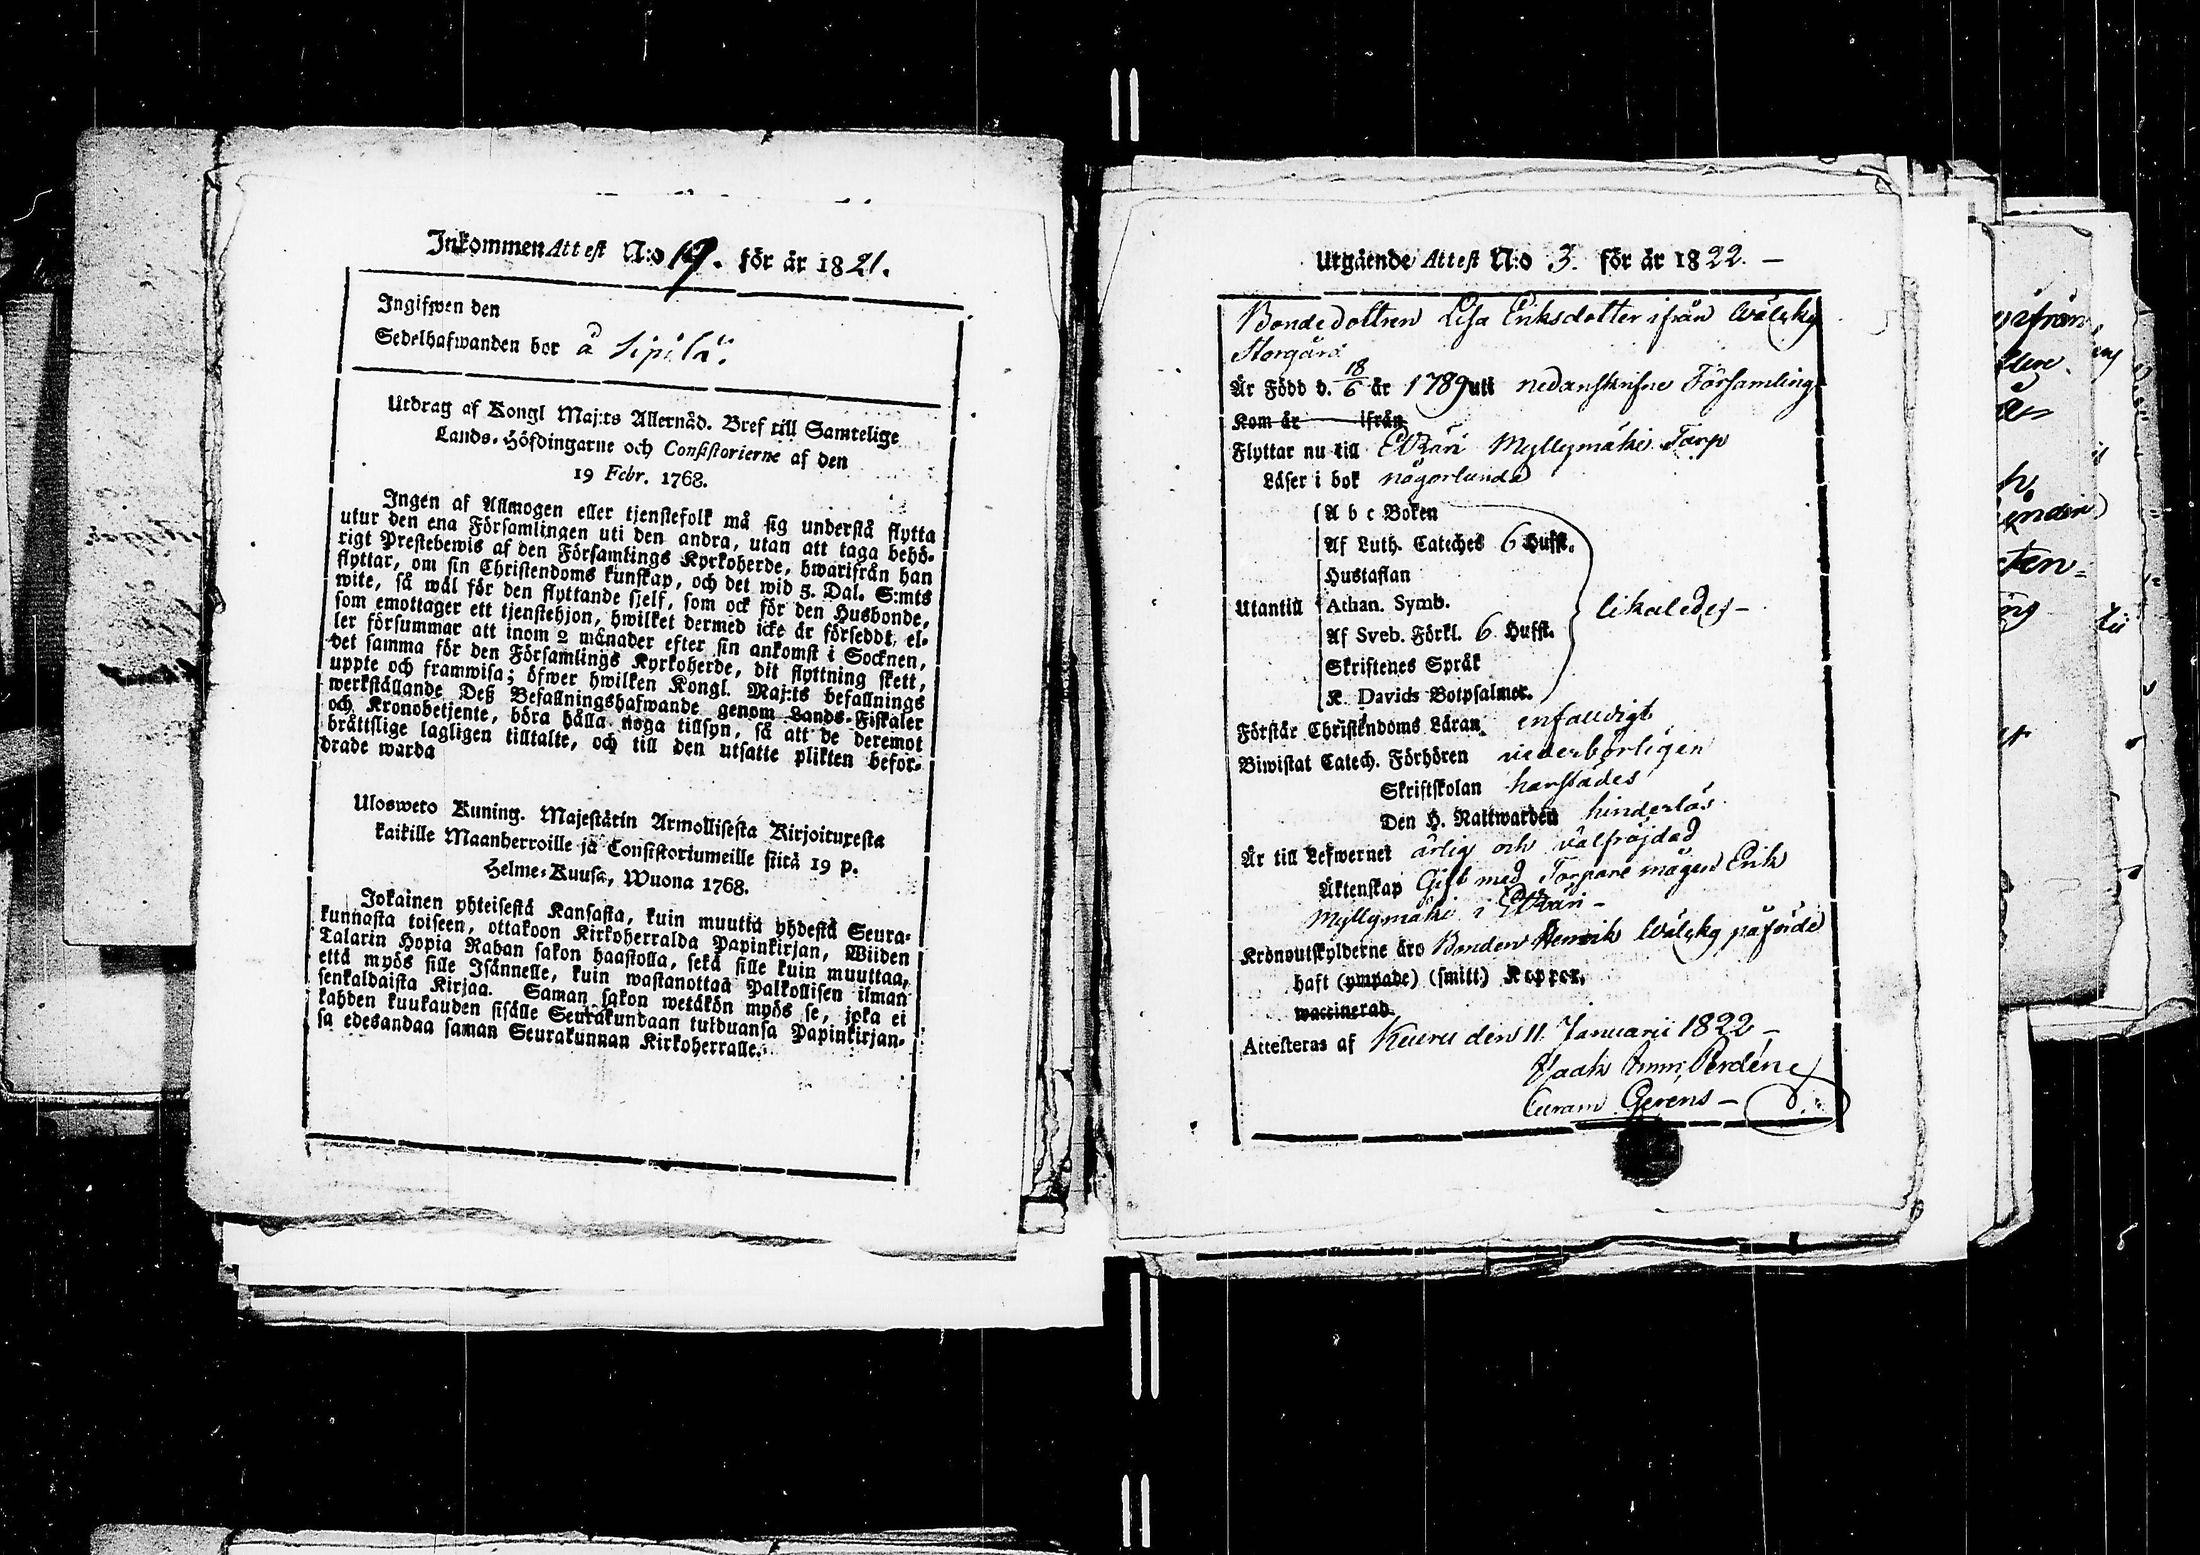 Inkommen Attest N:o 19. för år 1821.
Ingifwen den
Sedelhafwanden bor å Sipilä.
Utdrag af Kongl Maj:ts Allernåd. Bref till Samtelige
Lands-Höfdingarne och Consistorierne af den
19 Febr. 1768.
Ingen af Allmogen eller tjenstefolk må sig understå flytta
utur den ena Församlingen uti den andra, utan att taga behö-
rigt Prestebewis af den Församlings Kyrkoherde, hwarifrån han
flyttar, om sin Christendoms kunskap, och det wid 5. Dal. S:mts
wite, så wäl för den flyttande sjelf, som ock för den Husbonde,
som emottager ett tjenstehjon, hwilket dermed icke är försedt, el-
ler försummar att inom 2 månader efter sin ankomst i Socknen,
det samma för den Församlings Kyrkoherde, dit flyttning skett,
uppte och framwisa; öfwer hwilken Kongl. Maj:ts befallnings
werkställande Deß Befallningshafwande genom Lands-Fiskaler
och Kronobetjente, böra hålla noga tillsyn, så att de deremot
bråttslige lagligen tilltalte, och till den utsatte plikten befor-
drade warda
Ulosweto Kuning. Majestätin Armollisesta Kirjoituxesta
kaikille Maanherroille ja Consistoriumeille siitä 19 p.
Helme-Kuusa, Wuona 1768.
Jokainen yhteisestä Kansasta, kuin muuttaa yhdestä Seura-
kunnasta toiseen, ottakoon Kirkoherralda Papinkirjan, Wiiden
Talarin Hopia Rahan sakon haastolla, sekä sille kuin muuttaa,
että myös sille Isännelle, kuin wastanottaa Palkollisen ilman
senkaldaista Kirjaa. Saman sakon wetäkön myös se, joka ei
kahden kuukauden sisälle Seurakundaan tulduansa Papinkirjan-
sa edesandaa saman Seurakunnan Kirkoherralle.
Utgående Attest N:o 3. för år 1822. —
Bondedottren Lisa Eriksdotter ifrån Wälsky
Storgård
Är Född d. 18/6 år 1789 uti nedanskrifne Församling
Kom år ifrån
Flyttar nu till Etzäri Myllymäki Torp
Läser i bok någorlunda
A b c Boken
Af Luth. Cateches 6 Hufst.
Hustaflan
Utantill Athan. Symb. likaledes —
Af Sveb. Förkl. 6 Hufst.
Skriftenes Språk
K. Davids Botpsalmer.
Förstår Christendoms Läran enfaldigt
Biwistat Catech. Förhören wederbörligen
Skriftskolan härstädes
Den H. Nattwarden hinderlös
Är till Lefwernet ärlig och wälfräjdad
Äktenskap Gift med Torpare mågen Erik
Myllymäki i Etzäri —
Kronoutskylderne äro Bonden Henrik Wälsky påförde
haft (ympade) (smitt.) Koppor.
waccinerad.
Attesteras af Keuru den 11. Januarii 1822 —
Curam Gerens —